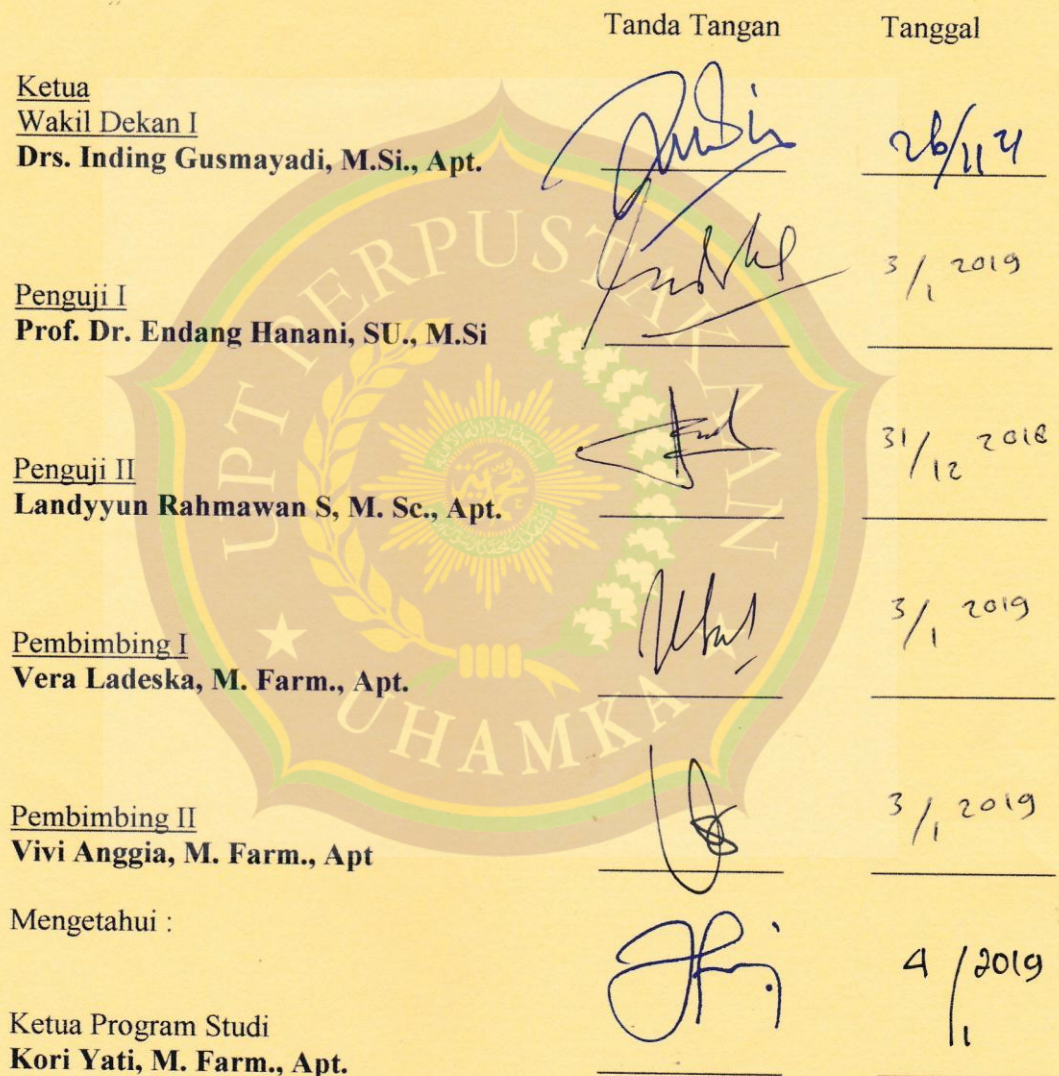 Tanda Tangan Tanggal
Ketua
Wakil Dekan I
Drs. Inding Gusmayadi, M.Si., Apt.
26/11 21
Penguji I
Prof. Dr. Endang Hanani, SU., M.Si
3/1 2019
Penguji II
Landyyun Rahmawan S, M. Sc., Apt.
31/12 2018
Pembimbing I
Vera Ladeska, M. Farm., Apt.
3/1 2019
Pembimbing II
Vivi Anggia, M. Farm., Apt
3/1 2019
Mengetahui :
Ketua Program Studi
Kori Yati, M. Farm., Apt.
4/1 2019
UPT PERPUSTAKAAN
UHAMKA